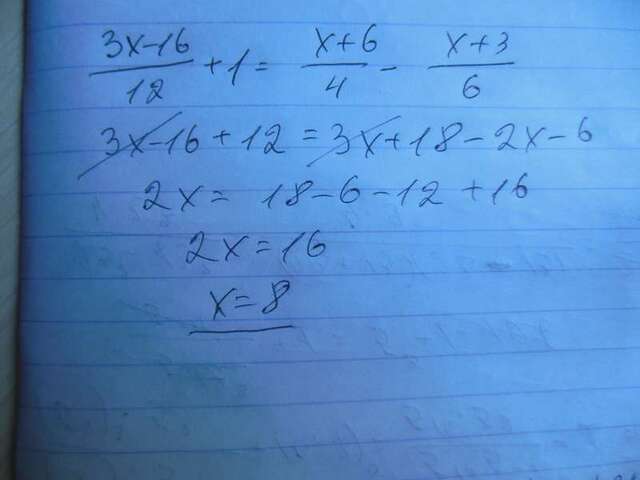 (3x-16)/12 + 1 = (x+6)/4 - (x+3)/6
3x-16+12 = 3x+18-2x-6
2x = 18-6-12+16
2x = 16
x = 8